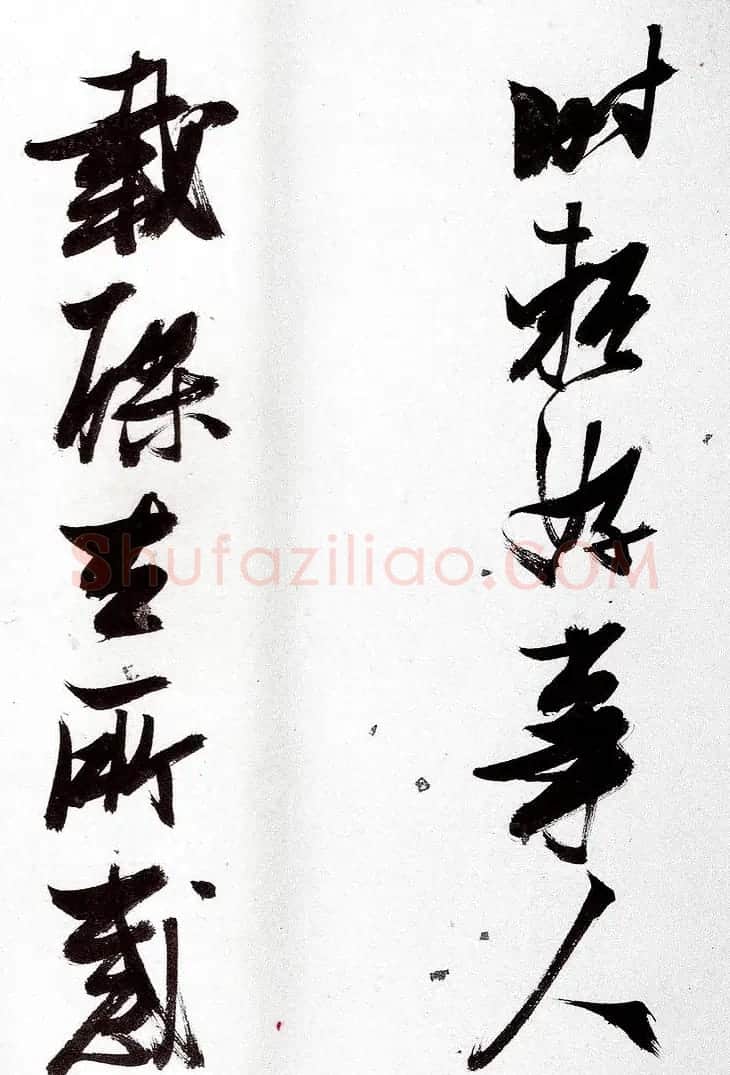 時賴好事人
載醪去所惑
Shufaziliao.COM